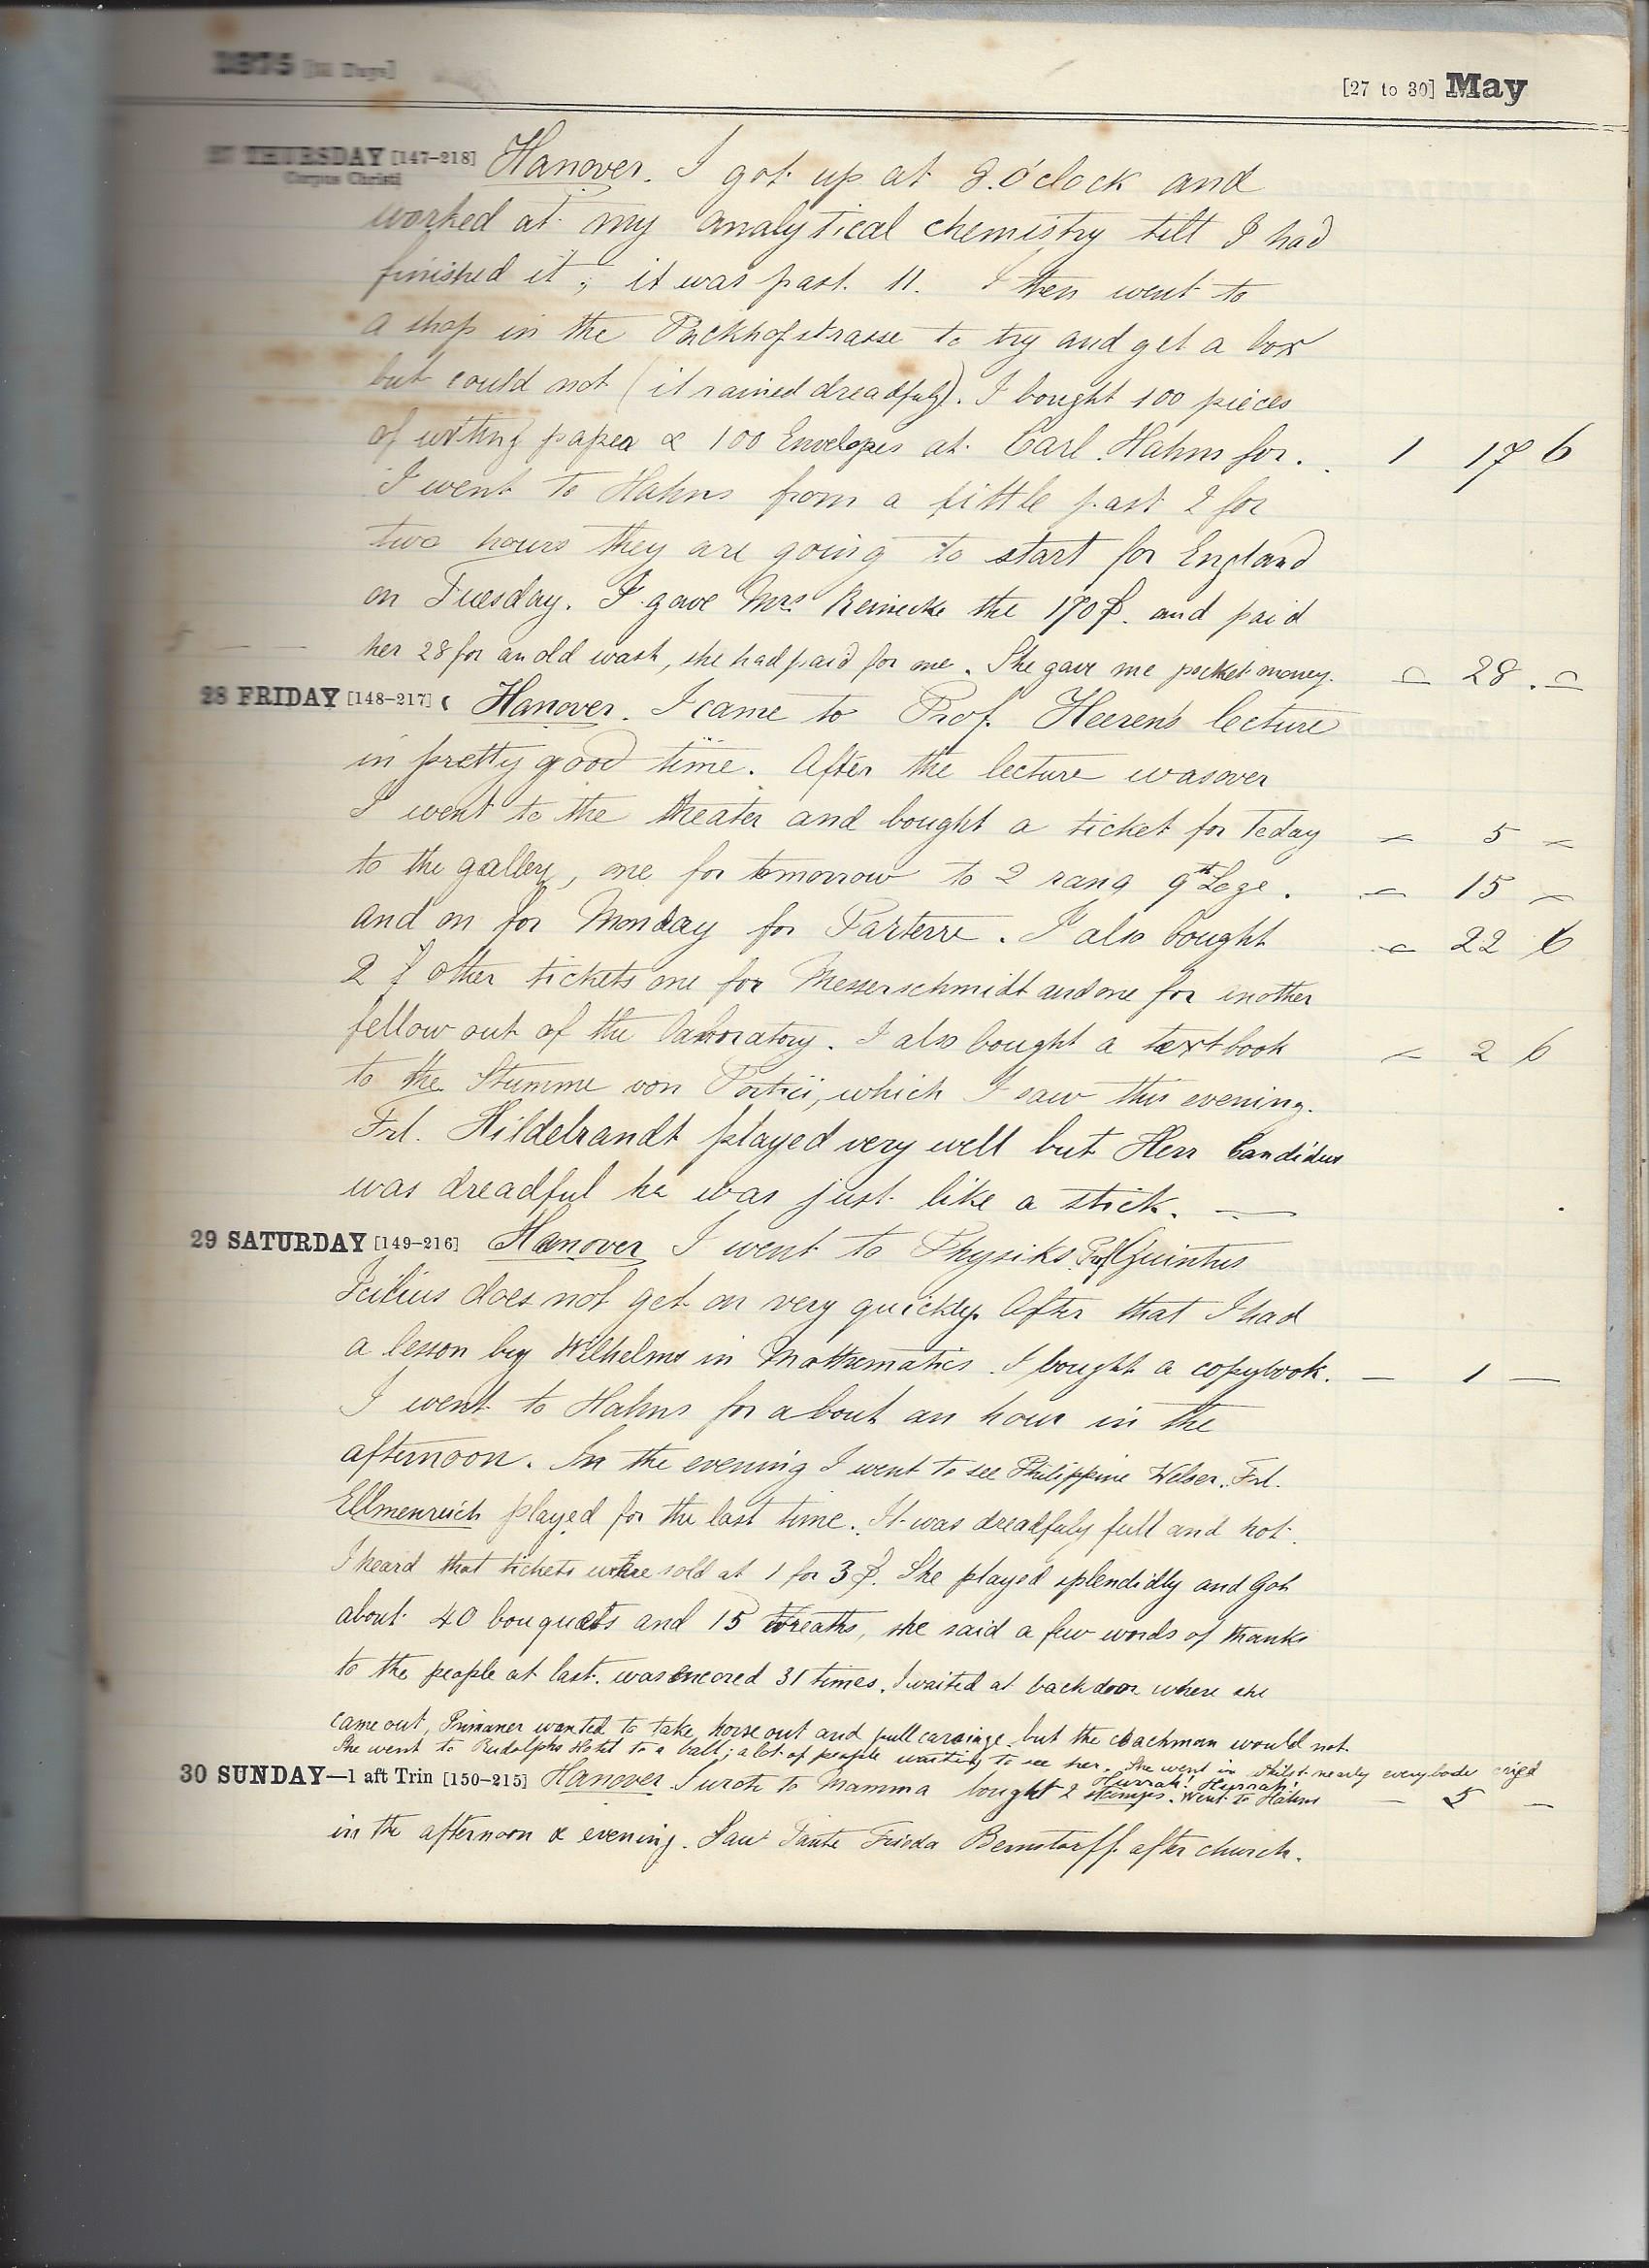 1875 [31 Days]
[27 to 30] May
27 THURSDAY [147-218] Hanover. I got up at 8.o'clock and
Corpus Christi
worked at my analytical chemistry till I had
finished it; it was past 11. I then went to
a shop in the Packhofstrasse to try and get a box
but could not (it rained dreadfuly). I bought 100 pieces
of writing paper & 100 Envelopes at Carl Hahns for. 1 17 6
I went to Hahns from a little past 2 for
two hours they are going to start for England
on Tuesday. I gave Mrs Reinecke the 170 and paid
5 — — her 28 for an old wash, she had paid for me. She gave me pocket money. – 28. –
28 FRIDAY [148-217] Hanover. I came to Prof. Heeren's lecture
in pretty good time. After the lecture was over
I went to the theater and bought a ticket for Today – 5 –
to the gallery, one for tomorrow to 2 rang 9th Loge. – 15 –
and on for Monday for Parterre. I also bought – 22 6
2 other tickets one for Messerschmidt and one for another
fellow out of the laboratory. I also bought a textbook – 2 6
to the Stumme von Portici, which I saw this evening.
Frl. Hildebrandt played very well but Herr Candidus
was dreadful he was just like a stick. —
29 SATURDAY [149-216] Hanover I went to Physiks. Prof Quintus
Icilius does not get on very quickly. After that I had
a lesson by Wilhelms in Mathematics. I bought a copybook. – 1 –
I went to Hahns for about an hour in the
afternoon. In the evening I went to see Philippine Welser. Frl.
Ellmenreich played for the last time. It was dreadfuly full and hot.
I heard that tickets where sold at 1 for 3. She played splendidly and got
about 40 bouquets and 15 wreaths, she said a few words of thanks
to the people at last. was encored 31 times. I waited at backdoor where she
came out, Primaner wanted to take horse out and pull carriage but the coachman would not.
She went to Rudolphs Hotel to a ball; a lot of people waiting to see her. She went in whilst nearly everybody cried
Hurrah! Hurrah!
30 SUNDAY—1 aft Trin [150-215] Hanover I wrote to Mamma bought 2 stamps. Went to Hahns – 5 –
in the afternoon & evening. Saw Tante Frieda Bernstorff after church.